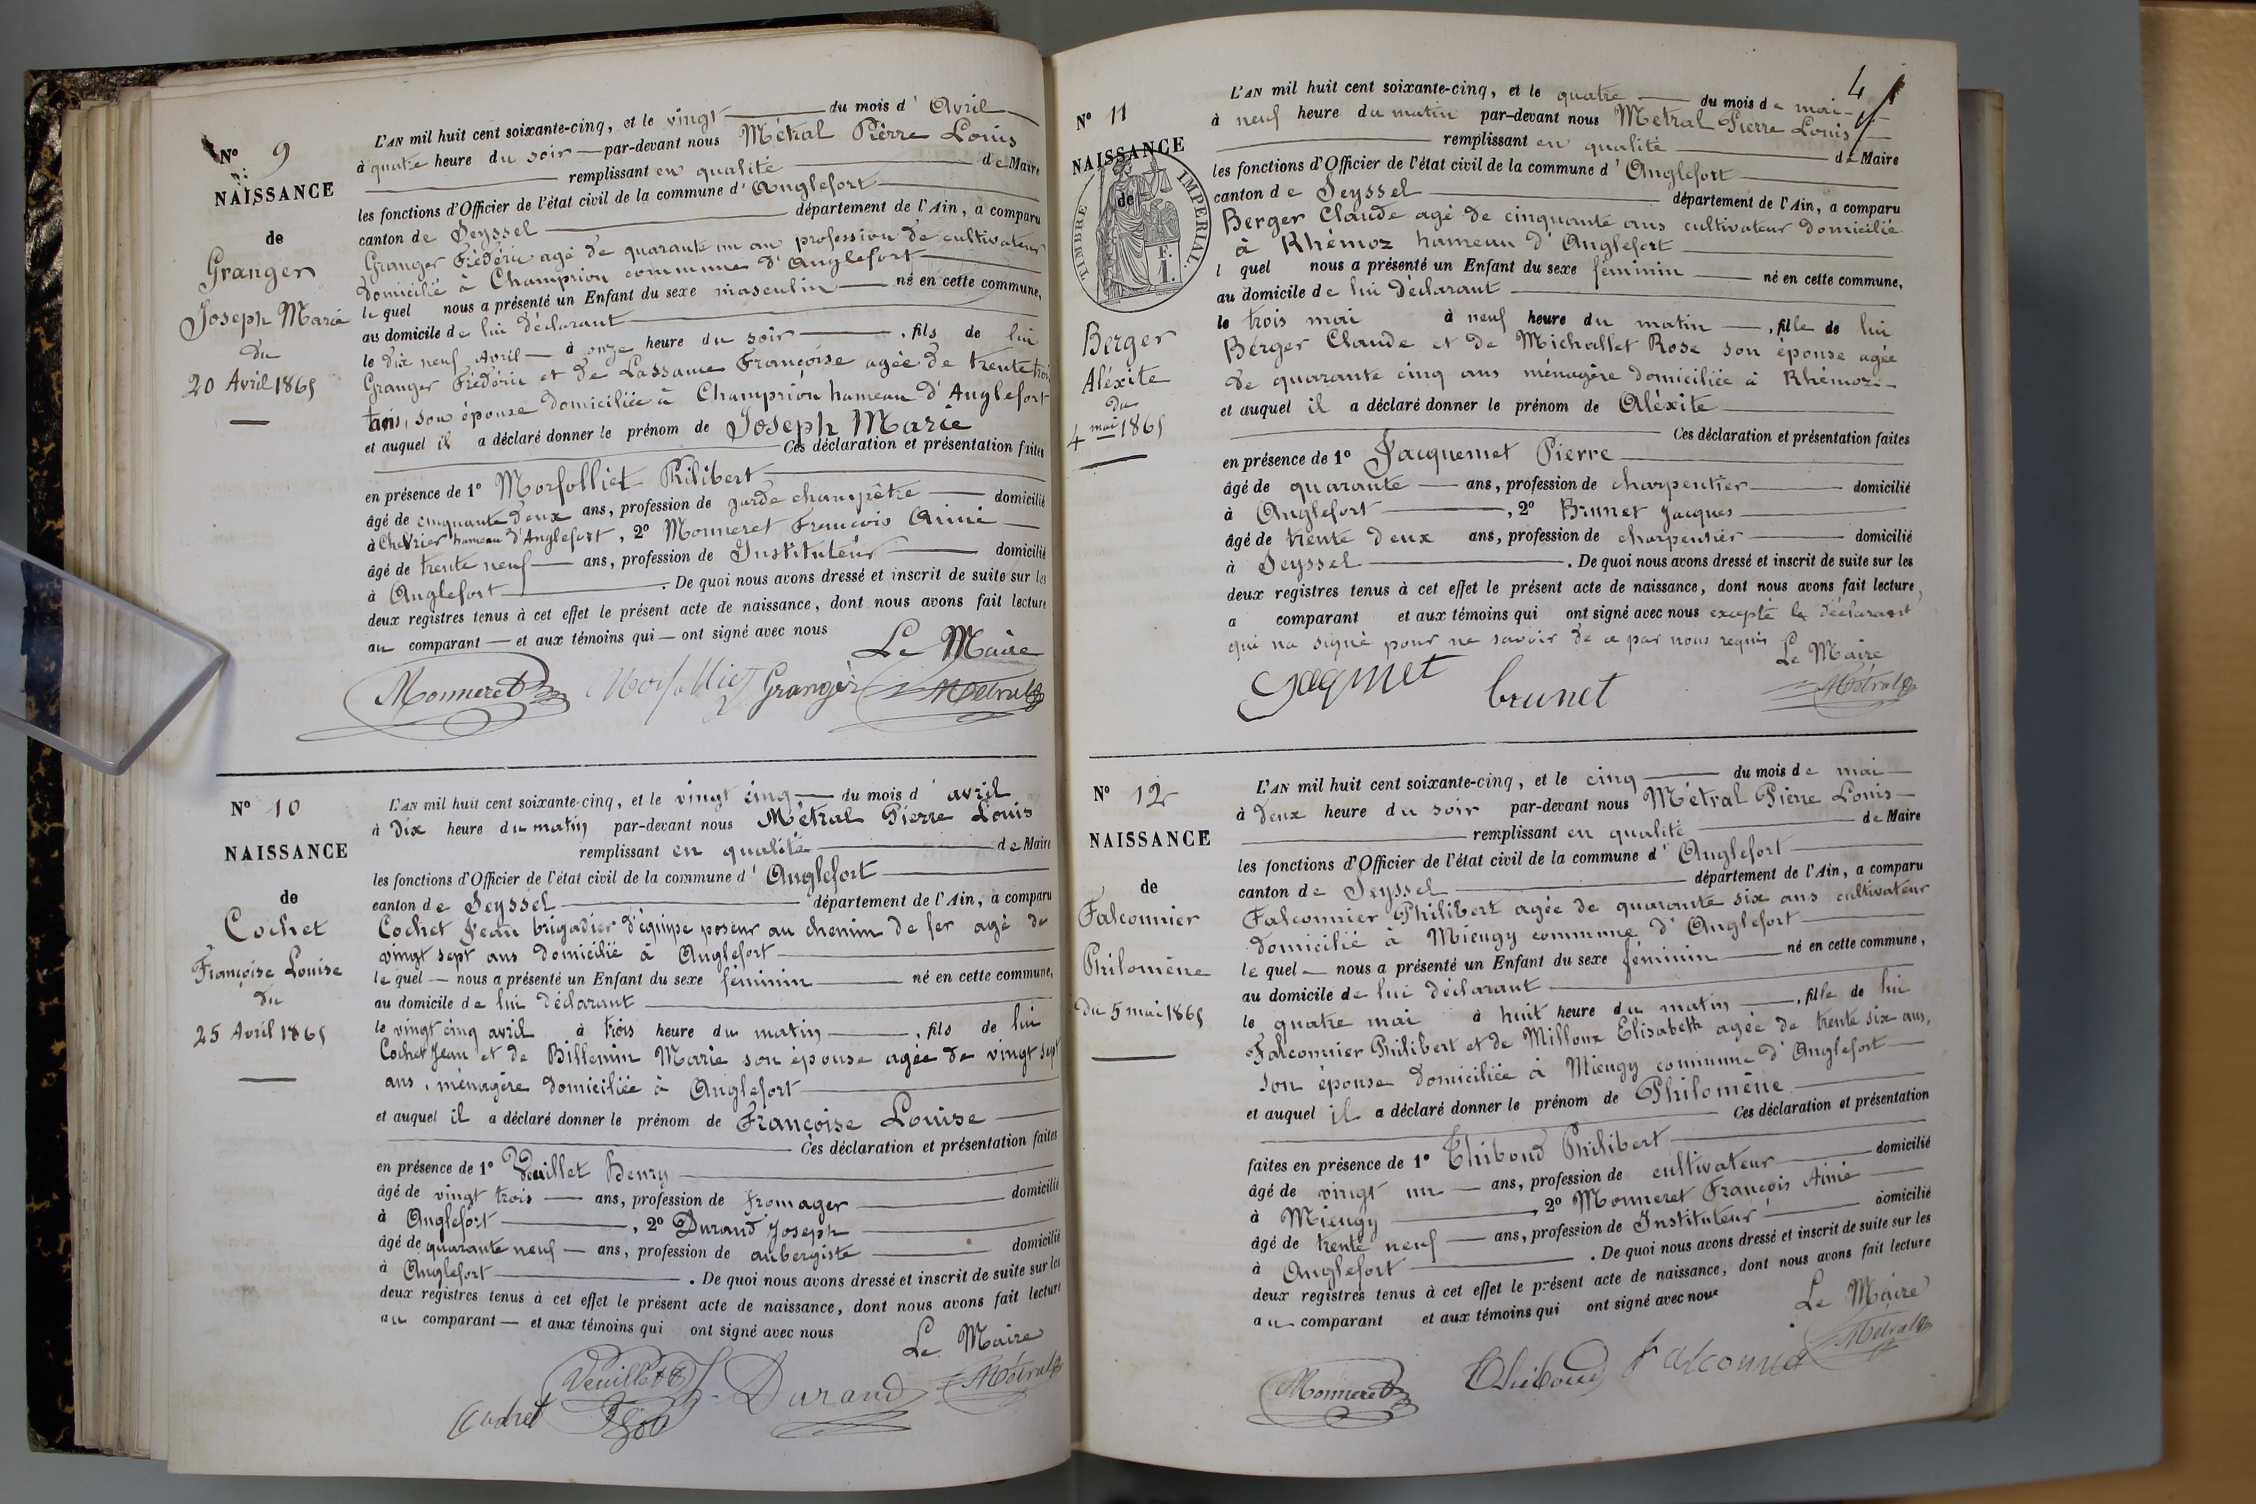 N° 9
NAISSANCE
de
Granger
Joseph Marie
du
20 Avril 1865
L'AN mil huit cent soixante-cinq, et le vingt du mois d' Avril
à quatre heure du soir par-devant nous Métral Pierre Louis
remplissant en qualité de Maire
les fonctions d'Officier de l'état civil de la commune d' Anglefort
canton de Seyssel département de l'Ain, a comparu
Granger Frédéric agé de quarante un an profession de cultivateur
domicilié à Champrion commune d'Anglefort
le quel nous a présenté un Enfant du sexe masculin né en cette commune,
au domicile de lui déclarant
le dix neuf Avril à onze heure du soir , fils de lui
Granger Frédéric et de Lassame Françoise agée de trente trois
ans, son épouse domiciliée à Champrion hameau d'Anglefort
et auquel il a déclaré donner le prénom de Joseph Marie
Ces déclaration et présentation faites
en présence de 1° Morfolliet Philibert
âgé de cinquante deux ans, profession de garde champêtre domicilié
à Chevrier hameau d'Anglefort, 2° Monneret François Aimé
âgé de trente neuf ans, profession de Instituteur domicilié
à Anglefort . De quoi nous avons dressé et inscrit de suite sur les
deux registres tenus à cet effet le présent acte de naissance, dont nous avons fait lecture
au comparant et aux témoins qui ont signé avec nous
Le Maire
Monneret Morfolliet Granger Métral
N° 10
NAISSANCE
de
Cochet
Françoise Louise
du
25 Avril 1865
L'AN mil huit cent soixante-cinq, et le vingt cinq du mois d' avril
à Dix heure du matin par-devant nous Métral Pierre Louis
remplissant en qualité de Maire
les fonctions d'Officier de l'état civil de la commune d' Anglefort
canton de Seyssel département de l'Ain, a comparu
Cochet Jean brigadier d'équipe poseur au chemin de fer agé de
vingt sept ans domicilié à Anglefort
le quel nous a présenté un Enfant du sexe féminin né en cette commune,
au domicile de lui déclarant
le vingt cinq avril à trois heure du matin , fils de lui
Cochet Jean et de Billemin Marie son épouse agée de vingt sept
ans, ménagère domiciliée à Anglefort
et auquel il a déclaré donner le prénom de Françoise Louise
Ces déclaration et présentation faites
en présence de 1° Veuillet Henry
âgé de vingt trois ans, profession de fromager domicilié
à Anglefort , 2° Durand Joseph
âgé de quarante neuf ans, profession de aubergiste domicilié
à Anglefort . De quoi nous avons dressé et inscrit de suite sur les
deux registres tenus à cet effet le présent acte de naissance, dont nous avons fait lecture
au comparant et aux témoins qui ont signé avec nous
Le Maire
Veuillet Durand Métral
4
N° 11
NAISSANCE
de
TIMBRE IMPÉRIAL.
F.
1.
Berger
Aléxite
du
4 mai 1865
L'AN mil huit cent soixante-cinq, et le quatre du mois de mai
à neuf heure du matin par-devant nous Métral Pierre Louis
remplissant en qualité de Maire
les fonctions d'Officier de l'état civil de la commune d' Anglefort
canton de Seyssel département de l'Ain, a comparu
Berger Claude agé de cinquante ans cultivateur domicilié
à Rhémoz hameau d'Anglefort
l quel nous a présenté un Enfant du sexe féminin né en cette commune,
au domicile de lui déclarant
le trois mai à neuf heure du matin , fille de lui
Berger Claude et de Michallet Rose son épouse agée
de quarante cinq ans ménagère domiciliée à Rhémoz
et auquel il a déclaré donner le prénom de Aléxite
Ces déclaration et présentation faites
en présence de 1° Jacquemet Pierre
âgé de quarante ans, profession de charpentier domicilié
à Anglefort , 2° Brunet Jacques
âgé de trente deux ans, profession de charpentier domicilié
à Seyssel . De quoi nous avons dressé et inscrit de suite sur les
deux registres tenus à cet effet le présent acte de naissance, dont nous avons fait lecture,
a comparant et aux témoins qui ont signé avec nous excepté le déclarant
qui na signé pour ne savoir de ce par nous requis
Le Maire
Jaqmet brunet Métral
N° 12
NAISSANCE
de
Falconnier
Philomène
du 5 mai 1865
L'AN mil huit cent soixante-cinq, et le cinq du mois de mai
à deux heure du soir par-devant nous Métral Pierre Louis
remplissant en qualité de Maire
les fonctions d'Officier de l'état civil de la commune d' Anglefort
canton de Seyssel département de l'Ain, a comparu
Falconnier Philibert agée de quarante six ans cultivateur
domicilié à Mieugy commune d'Anglefort
le quel nous a présenté un Enfant du sexe féminin né en cette commune,
au domicile de lui déclarant
le quatre mai à huit heure du matin , fille de lui
Falconnier Philibert et de Milloux Elisabeth agée de trente six ans,
son épouse domiciliée à Mieugy commune d'Anglefort
et auquel il a déclaré donner le prénom de Philomène
Ces déclaration et présentation
faites en présence de 1° Thiboud Philibert
âgé de vingt un ans, profession de cultivateur domicilié
à Mieugy , 2° Monneret François Aimé
âgé de trente neuf ans, profession de Instituteur domicilié
à Anglefort . De quoi nous avons dressé et inscrit de suite sur les
deux registres tenus à cet effet le présent acte de naissance, dont nous avons fait lecture
au comparant et aux témoins qui ont signé avec nous
Le Maire
Monneret Thiboud Métral